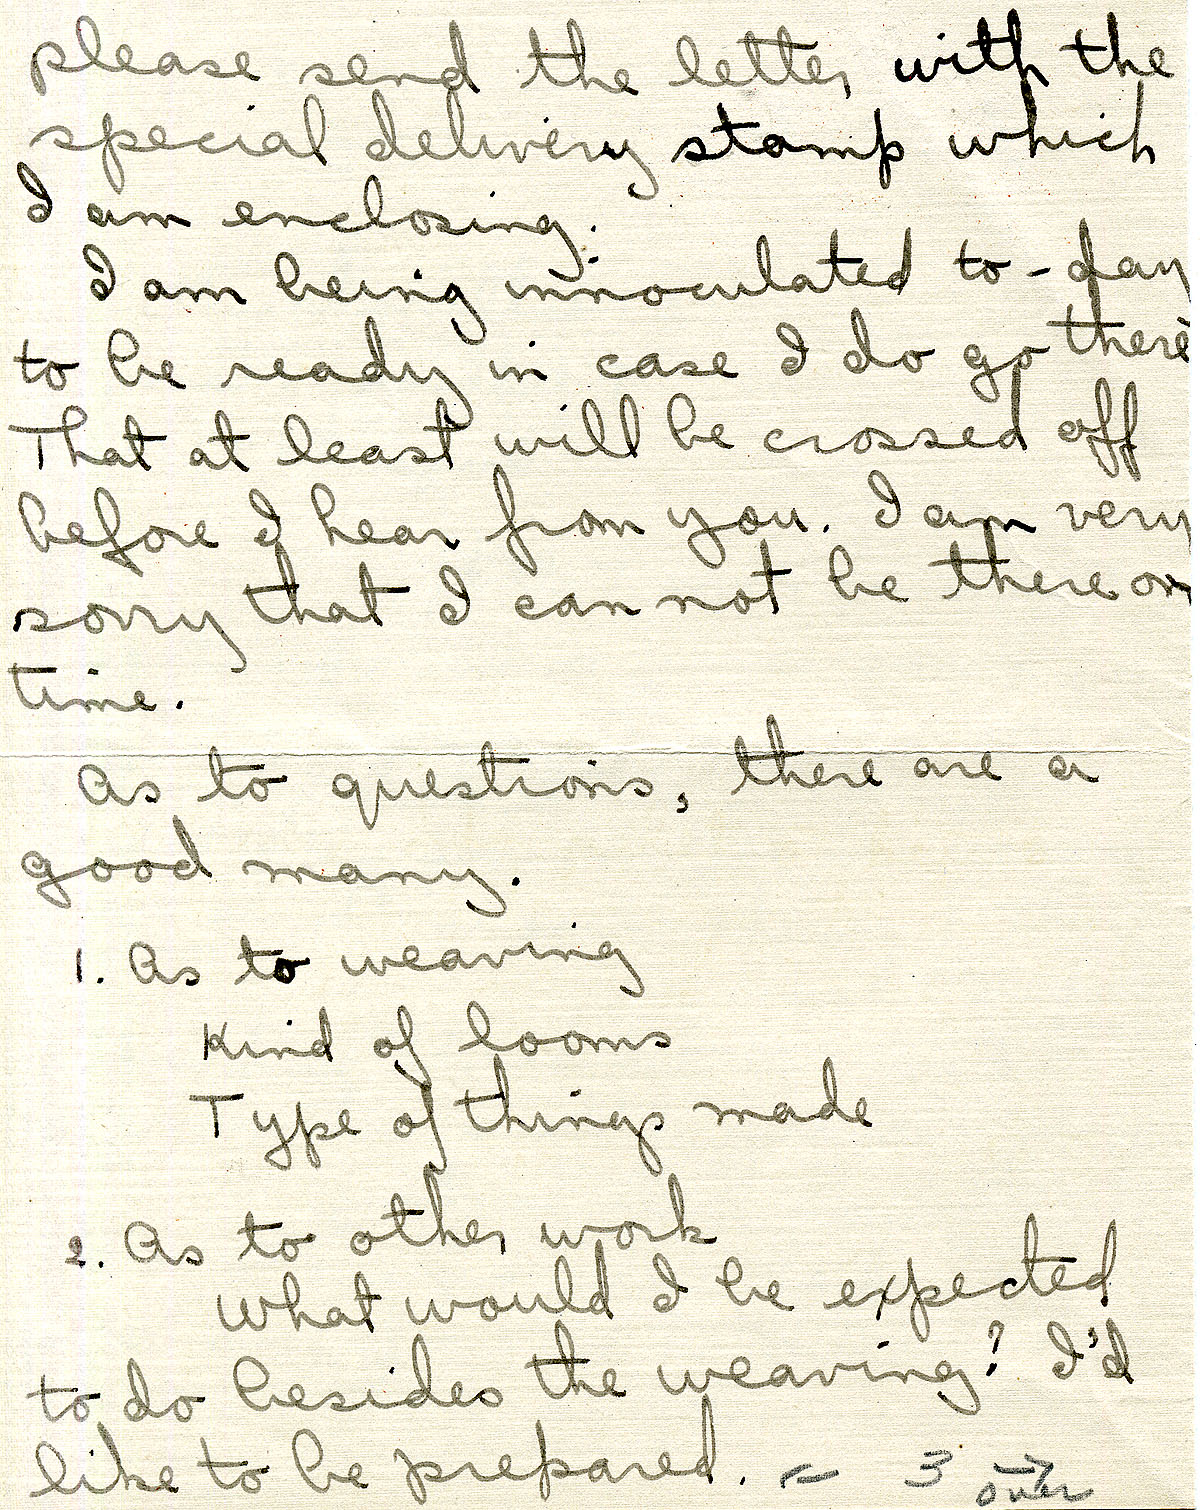 please send the letter with the
special delivery stamp which
I am enclosing.
I am being innoculated to-day
to be ready in case I do go there
That at least will be crossed off
before I hear from you. I am very
sorry that I can not be there on
time.
As to questions, there are a
good many.
1. As to weaving
Kind of looms
Type of things made
2. As to other work
What would I be expected
to do besides the weaving? I'd
like to be prepared. 3 over